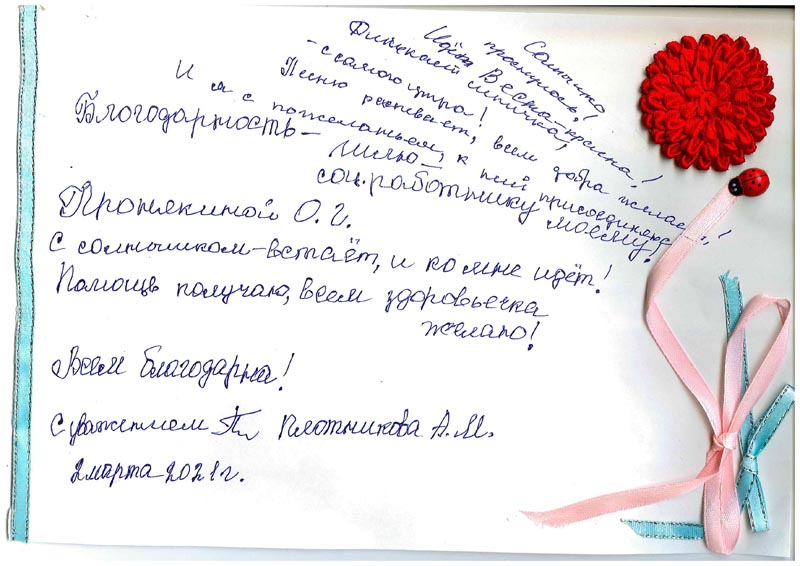 Солнышко
проснулось!
Идёт Весна-красна!
Тинькает синичка,
- с самого утра!
Песню распевает, всем добра желает!
И я с пожеланьем, к ней присоединяюсь,
Благодарность –
шлю –
соц. работнику моему!
Пронякиной О.Г.
С солнышком – встаёт, и ко мне идёт!
Помощь получаю, всем здоровьечка
желаю!
Всем благодарна!
С уважением Пл Плотникова А.М.
2 марта 2021 г.